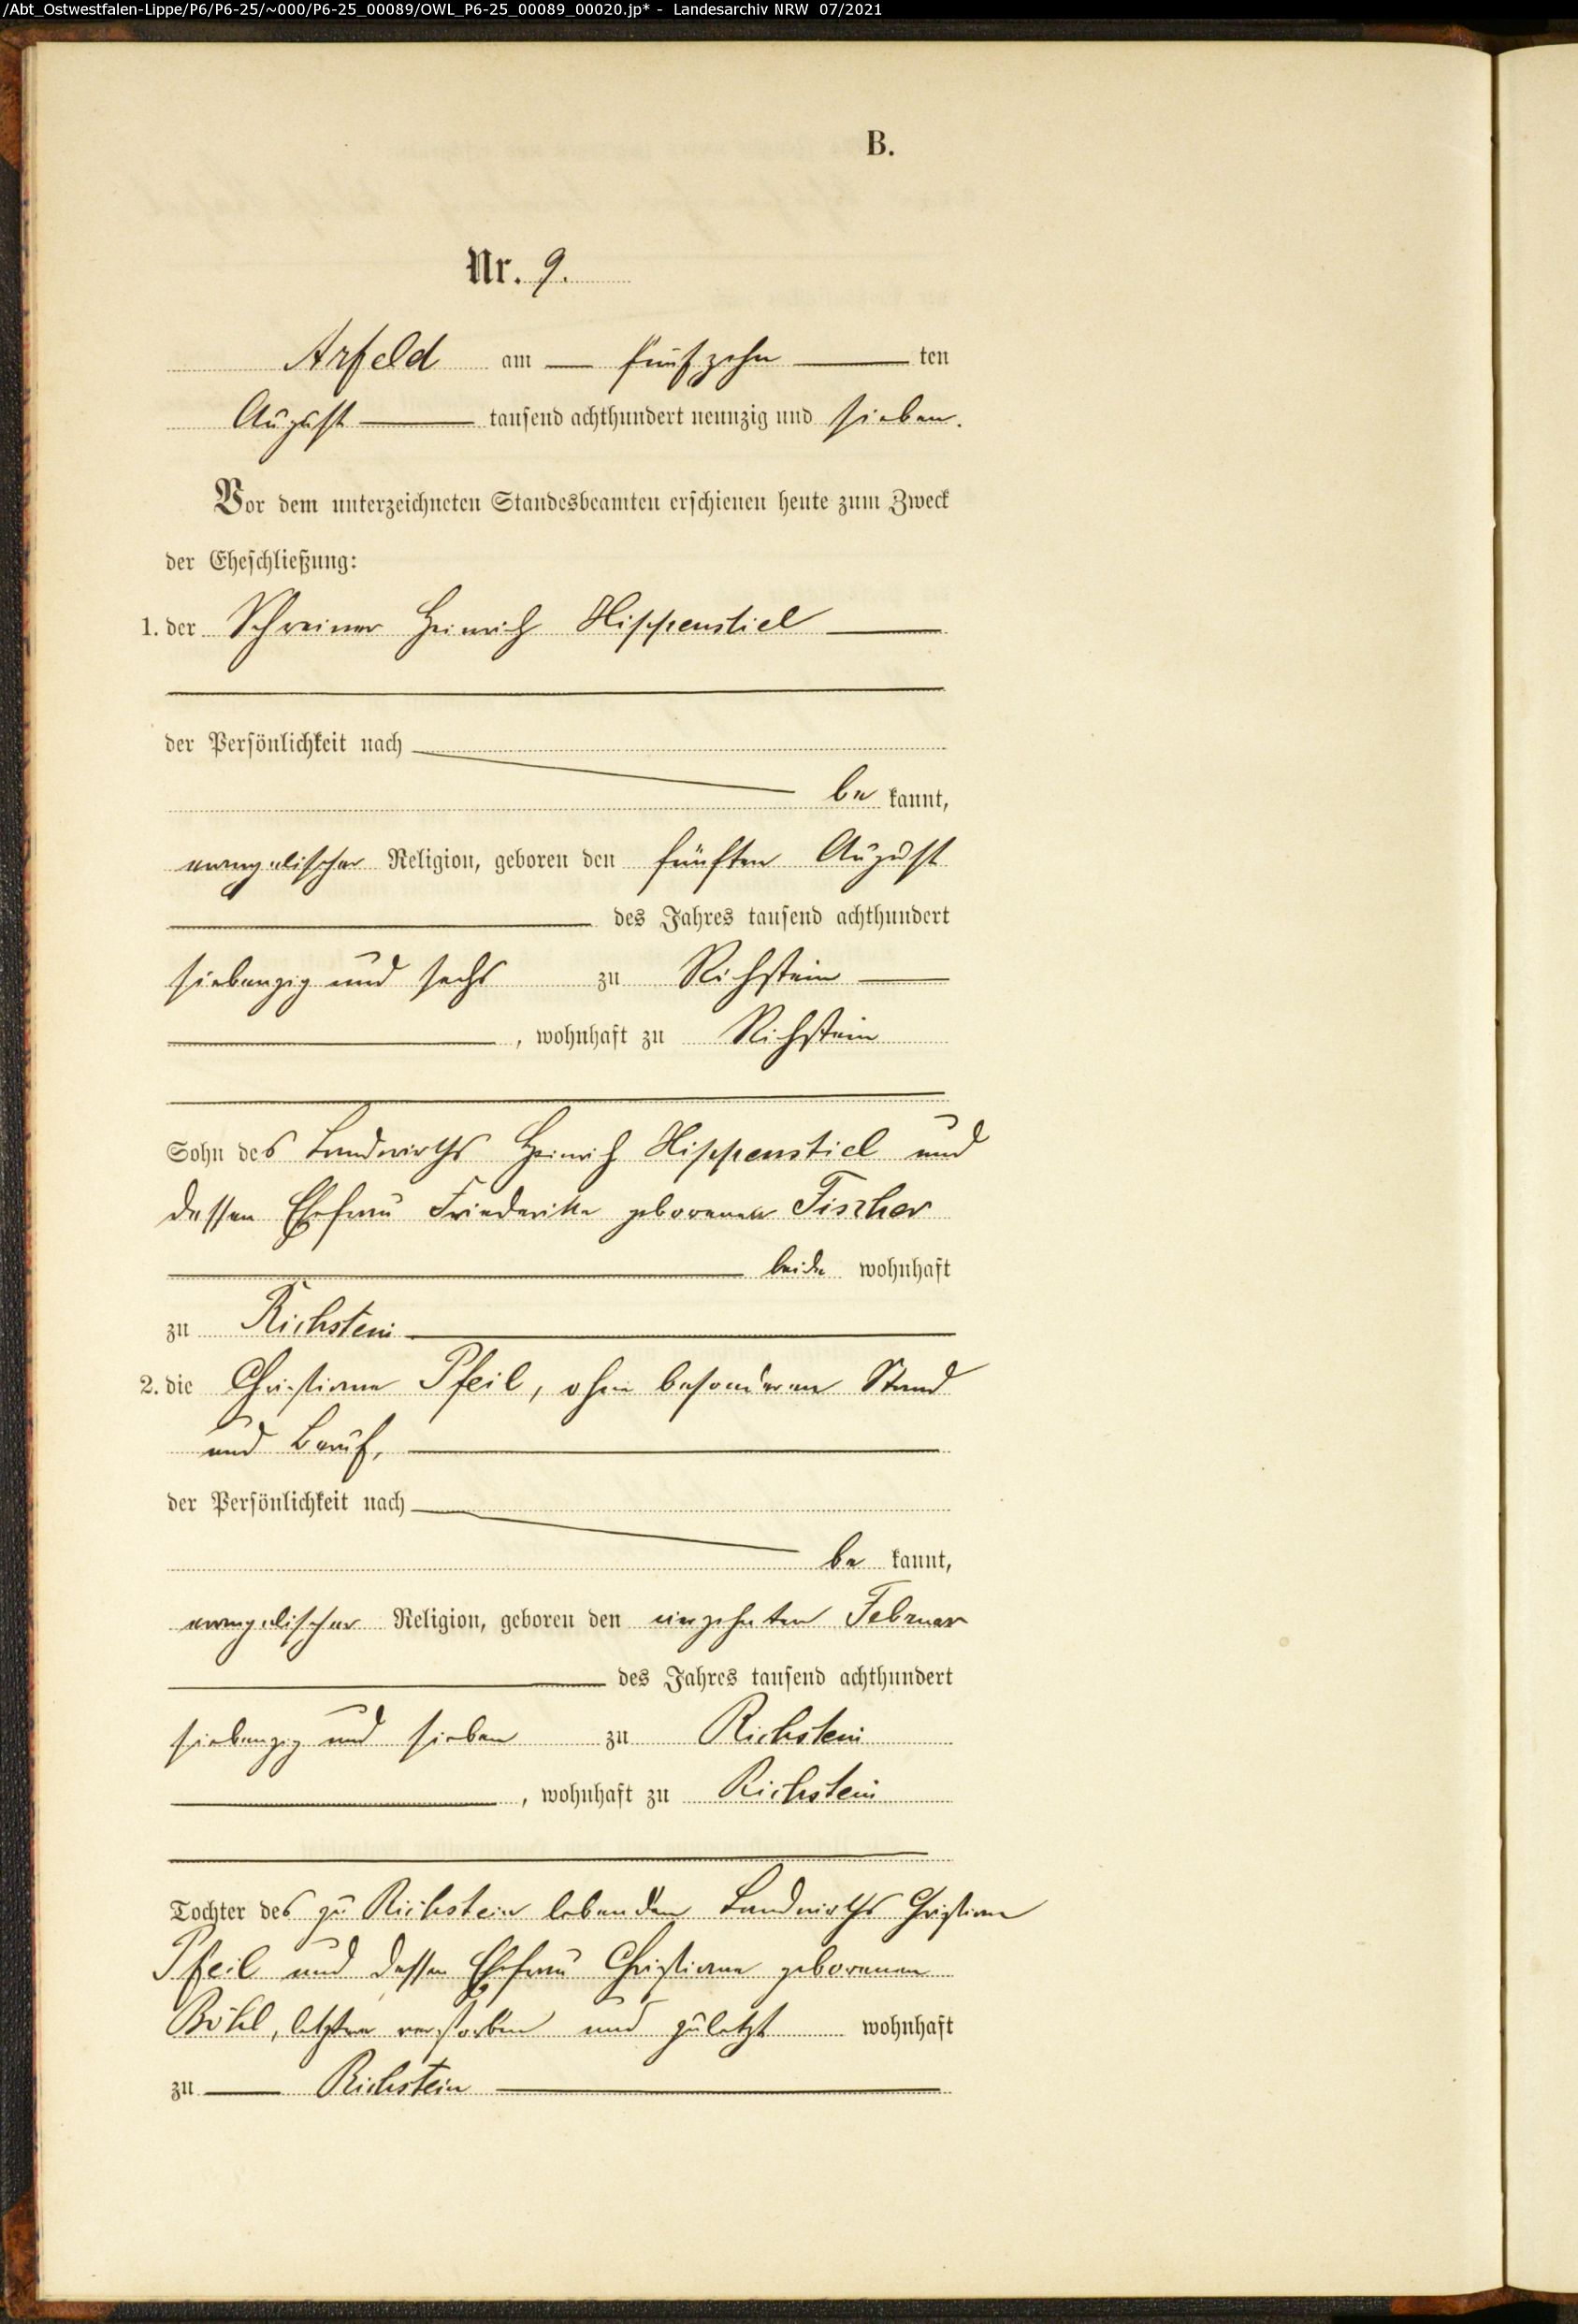 /Abt_Ostwestfalen-Lippe/P6/P6-25/~000/P6-25_00089/OWL_P6-25_00089_00020.jp* - Landesarchiv NRW 07/2021
B.
Nr. 9.
Arfeld am fünfzehn ten
August tausend achthundert neunzig und sieben.
Vor dem unterzeichneten Standesbeamten erschienen heute zum Zweck
der Eheschließung:
1. der Schreiner Heinrich Hippenstiel
der Persönlichkeit nach
be kannt,
evangelischer Religion, geboren den fünften August
des Jahres tausend achthundert
siebenzig und sechs zu Richstein
, wohnhaft zu Richstein
Sohn des Landwirths Heinrich Hippenstiel und
dessen Ehefrau Friederike geborenen Fischer
beide wohnhaft
zu Richstein
2. die Christiane Pfeil, ohne besonderen Stand
und Beruf,
der Persönlichkeit nach
be kannt,
evangelischer Religion, geboren den vierzehnten Februar
des Jahres tausend achthundert
siebenzig und sieben zu Richstein
, wohnhaft zu Richstein
Tochter des zu Richstein lebenden Landwirths Christian
Pfeil und dessen Ehefrau Christiane geborenen
Böhl, letztere verstorben und zuletzt wohnhaft
zu Richstein